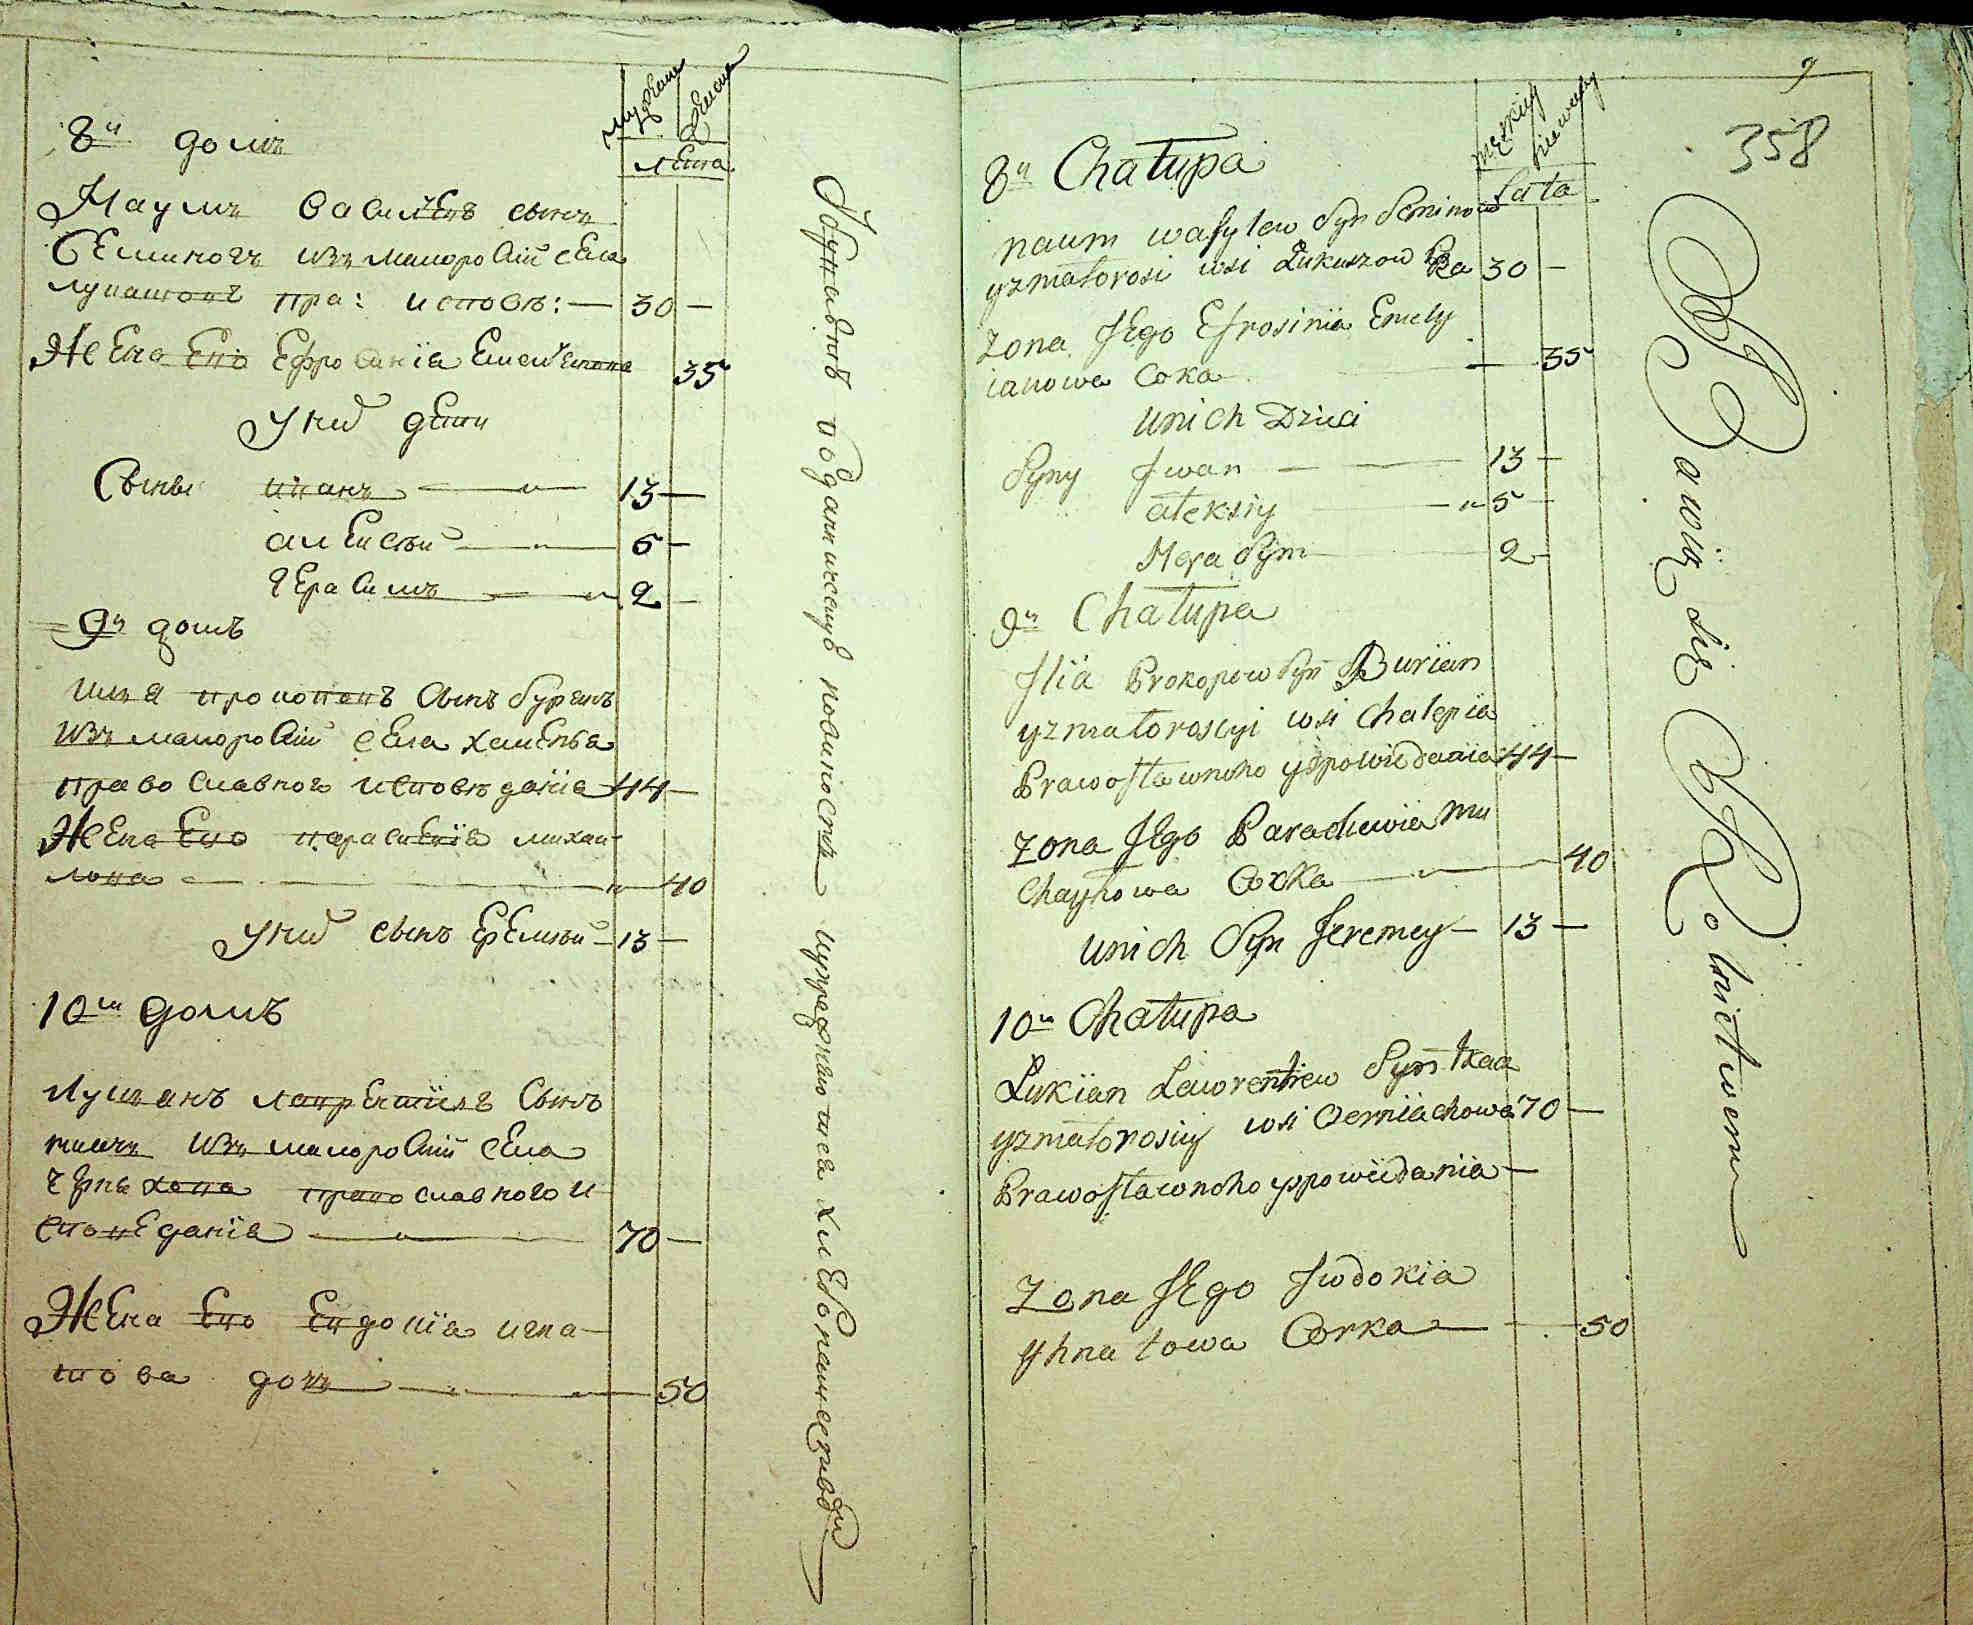 мужеска
женска
лета
8й домъ
Наумъ васил҃евъ сынъ
Семиногъ изъ малоросіи села
лукашовъ пра: испов: — 30 —
Жена Его Ефросинїа Емел҃янова 35
У них дети
Сыны иванъ — 13 —
алексѣй — 5 —
герасимъ — 2 —
9й домъ
илїа прокоповъ сынъ бурянъ
изъ малоросіи села халепъа
православного исповѣданїа 44 —
Жена Его параскевїа михаи-
лова — 40
У них сынъ Еремѣй — 13 —
10й домъ
Лукїанъ лаврентїевъ Сынъ
ткачъ изъ малоросіи села
черняхова православного и
споведанїа — 70 —
Жена Его Евдокїа игна-
това дочь — 50
подданическую повиность хлебопашеством
9
358
męzkiey
niewiasty
Lata
8й Chałupa
naum wasylew Syn Seminow
yzmałorosi wsi Łukaszowka 30 —
Zona JEgo Efrosinïa Emely
ianowa Corka — 35
unich Dzieci
Syny Jwan — 13 —
ałeksiy — 5 —
Hera Sym 2 —
9й Chałupa
Jlïa Prokopow Syn Burïan
yzmałorosiyi wsi Chalepïa
Prawosławnoho yspowiedania 44 —
Zona JEgo Parackewia Mu
chayłowa Corka — 40
unich Syn Jeremey — 13 —
10й Chałupa
Lukïan Lawrentiew Syn tkacz
yzmałorosiy wsi Czerniachowa 70 —
Prawosławnoho yspowiidania —
Zona JEgo Jwdokia
yhnatowa Corka — 50
Bawią się Rolnictwem